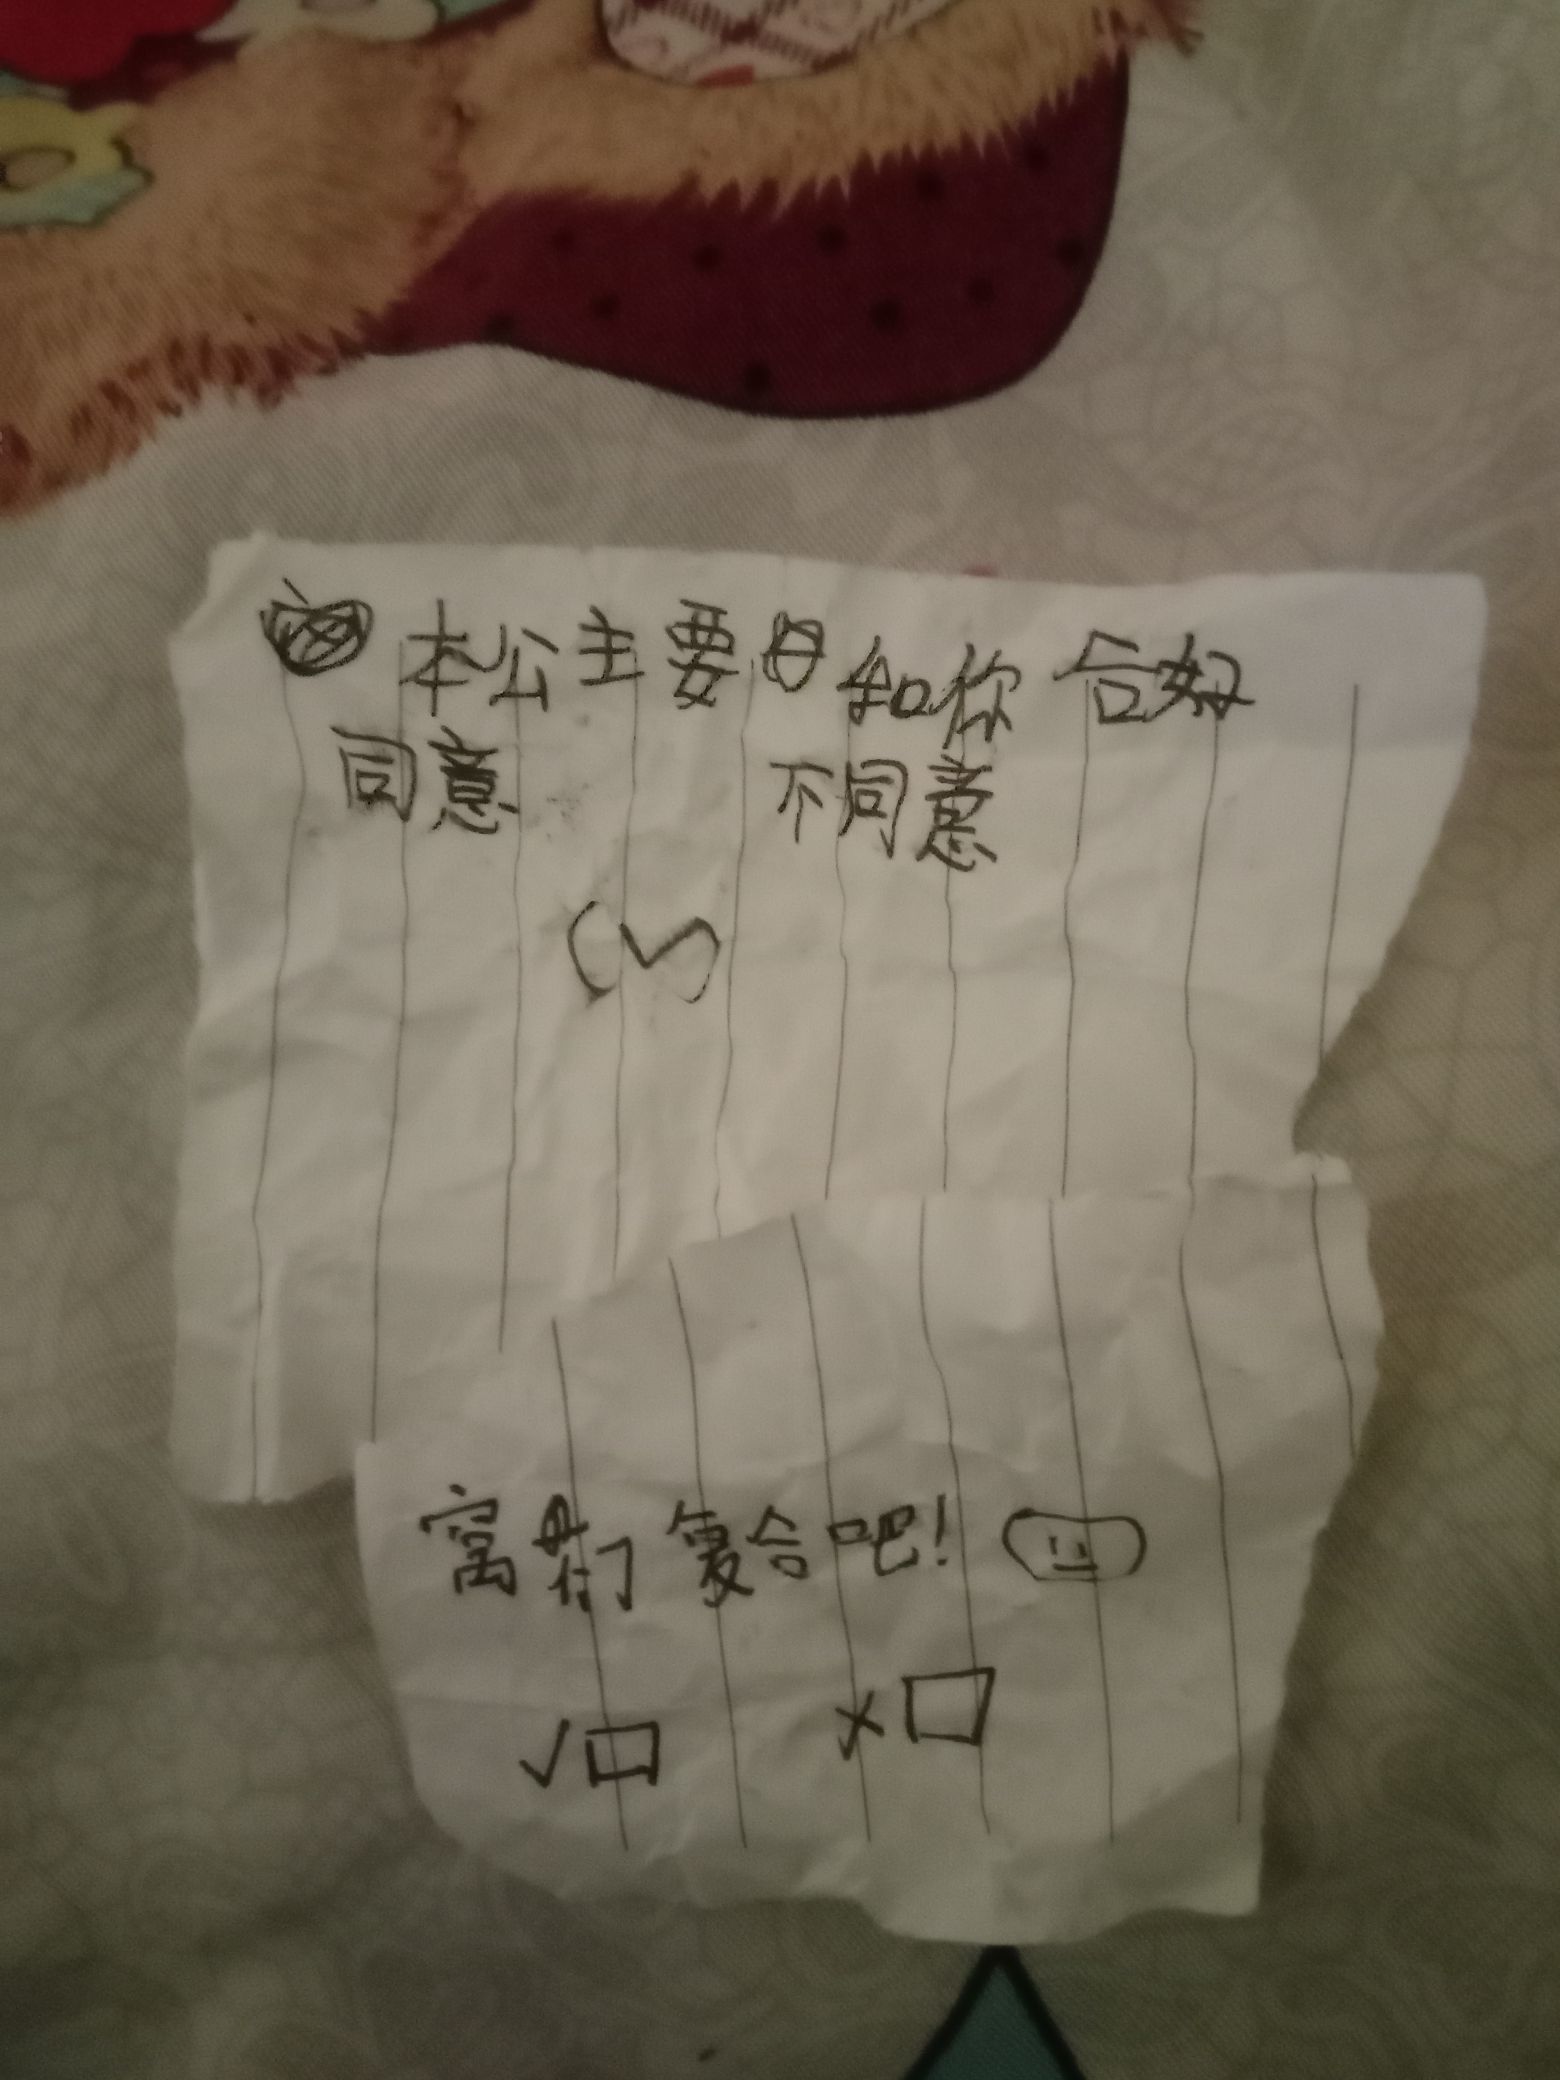 本公主要和你合好
同意 不同意
窝们复合吧！
√□ ×□